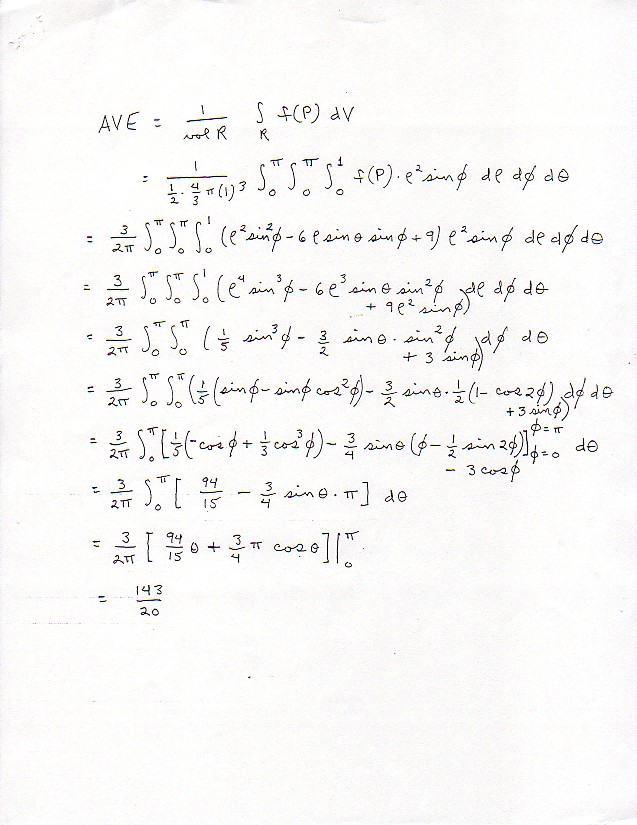 AVE = 1/(vol R) ∫_R f(P) dV
= 1/(1/2 · 4/3 π(1)^3) ∫_0^π ∫_0^π ∫_0^1 f(P) · ρ^2 sin φ dρ dφ dθ
= 3/(2π) ∫_0^π ∫_0^π ∫_0^1 (ρ^2 sin^2 φ - 6 ρ sin θ sin φ + 9) ρ^2 sin φ dρ dφ dθ
= 3/(2π) ∫_0^π ∫_0^π ∫_0^1 (ρ^4 sin^3 φ - 6ρ^3 sin θ sin^2 φ + 9ρ^2 sin φ) dρ dφ dθ
= 3/(2π) ∫_0^π ∫_0^π (1/5 sin^3 φ - 3/2 sin θ · sin^2 φ + 3 sin φ) dφ dθ
= 3/(2π) ∫_0^π ∫_0^π (1/5 (sin φ - sin φ cos^2 φ) - 3/2 sin θ · 1/2 (1 - cos 2φ) + 3 sin φ) dφ dθ
= 3/(2π) ∫_0^π [1/5 (-cos φ + 1/3 cos^3 φ) - 3/4 sin θ (φ - 1/2 sin 2φ) - 3 cos φ]_{φ=0}^{φ=π} dθ
= 3/(2π) ∫_0^π [94/15 - 3/4 sin θ · π] dθ
= 3/(2π) [94/15 θ + 3/4 π cos θ]|_0^π
= 143/20